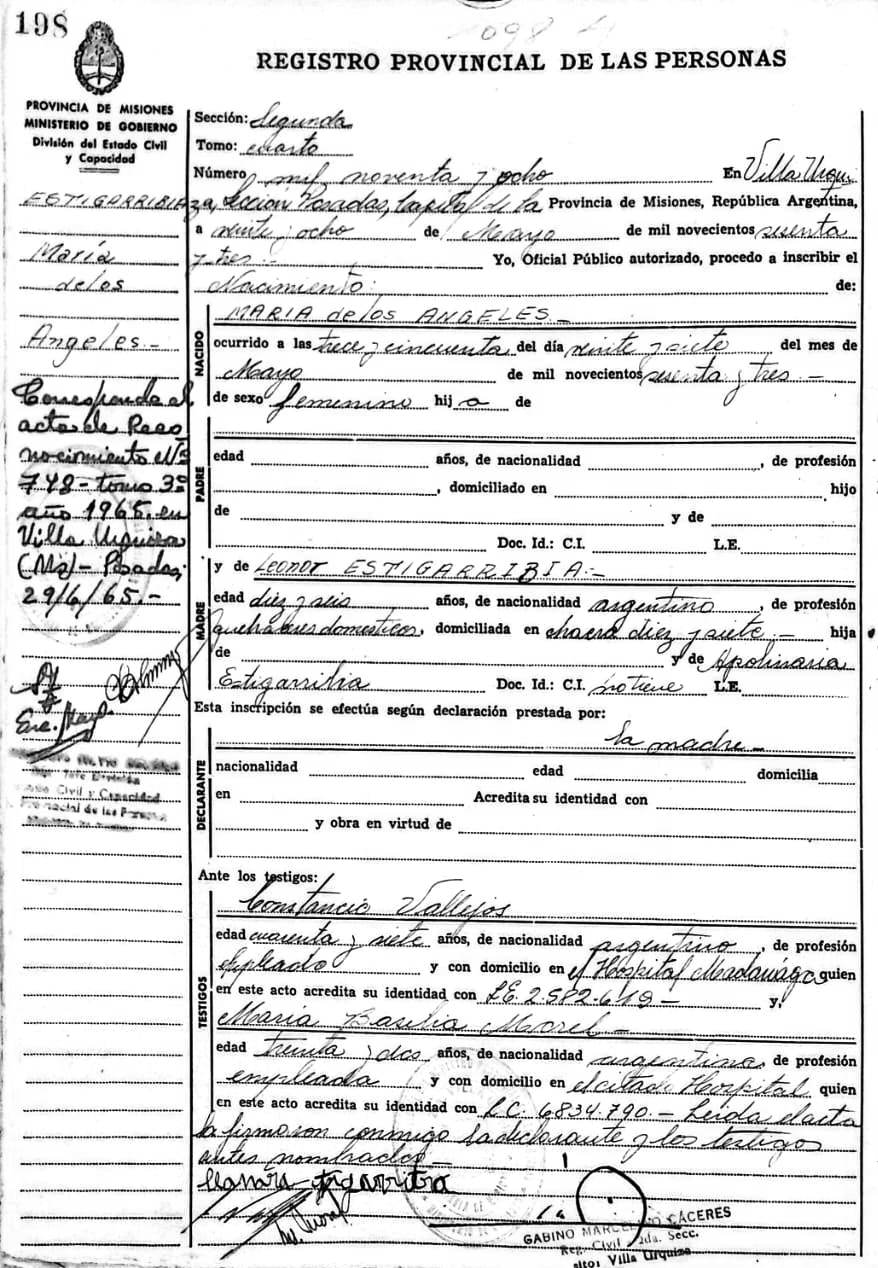 198
1098
REGISTRO PROVINCIAL DE LAS PERSONAS
PROVINCIA DE MISIONES
MINISTERIO DE GOBIERNO
División del Estado Civil
y Capacidad
ESTIGARRIBIA
María
de los
Angeles.-
Corresponde al
acta de Reco
nocimiento Nº
748 - tomo 3º
año 1965. en
Villa Urquiza
(Ms) - Posadas,
29/6/65.-
Civil y Capacidad
Sección: Segunda
Tomo: cuarto
Número mil noventa y ocho En Villa Urqui
za, Sección Posadas, Capital de la Provincia de Misiones, República Argentina,
a veinte y ocho de Mayo de mil novecientos sesenta
y tres.- Yo, Oficial Público autorizado, procedo a inscribir el
Nacimiento: de:
NACIDO
MARIA de los ANGELES.-
ocurrido a las trece y cincuenta del día veinte y siete del mes de
Mayo de mil novecientos sesenta y tres.-
de sexo femenino hij a de
PADRE
edad años, de nacionalidad , de profesión
, domiciliado en hijo
de y de
Doc. Id.: C.I. L.E.
MADRE
y de Leonor ESTIGARRIBIA.-
edad diez y seis años, de nacionalidad argentino , de profesión
quehaceres domesticos, domiciliada en chacra diez y siete.- hija
de y de Apolinaria
Estigarribia Doc. Id.: C.I. no tiene L.E.
Esta inscripción se efectúa según declaración prestada por:
DECLARANTE
la madre.-
nacionalidad edad domicilia
en Acredita su identidad con
y obra en virtud de
Ante los testigos:
TESTIGOS
Constancio Vallejos
edad cuarenta y siete años, de nacionalidad argentino , de profesión
empleado y con domicilio en el Hospital Madariaga quien
en este acto acredita su identidad con L.E. 2.582.619 - y,
María Basilia Morel -
edad treinta y dos años, de nacionalidad argentina, de profesión
empleada y con domicilio en el citado Hospital quien
en este acto acredita su identidad con L.C. 6.834.790.- Leída el acta
la firmaron conmigo la declarante y los testigos
antes nombrados.-
GABINO MARCELINO CÁCERES
Reg. Civil 2da. Secc.
Villa Urquiza